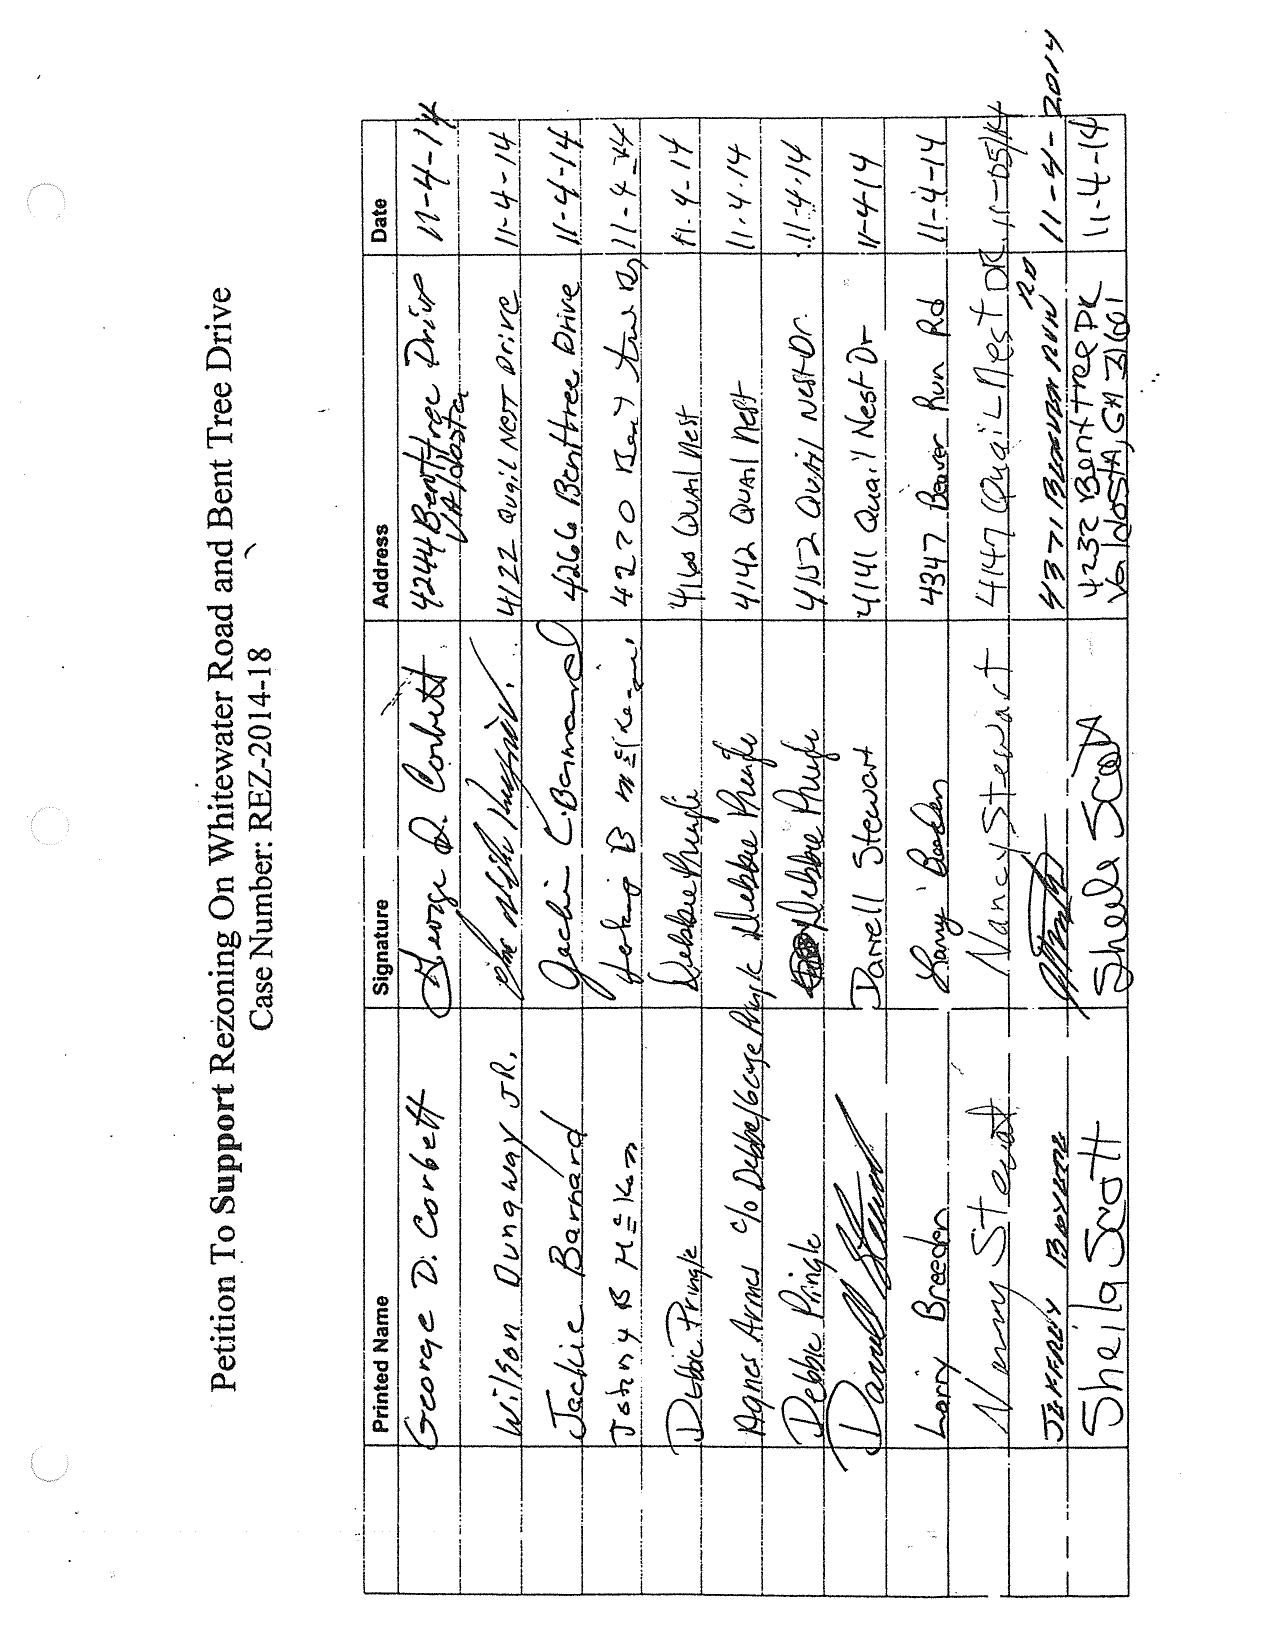 Petition To Support Rezoning On Whitewater Road and Bent Tree Drive
Case Number: REZ-2014-18
Printed Name Signature Address Date
George D. Corbett George D. Corbett 4244 Benttree Drive 11-4-14
Valdosta
Wilson Dunaway JR. 4122 Quail Nest Drive 11-4-14
Jackie Barnard Jackie C. Barnard 4266 Benttree Drive 11-4-14
B 4270 Bent tree 11-4-14
Debbie Pringle Debbie Pringle 4160 Quail Nest 11-4-14
Agnes Armes c/o Debbie/George Pringle Debbie Pringle 4142 Quail Nest 11-4-14
Debbie Pringle Debbie Pringle 4152 Quail Nest Dr. 11-4-14
Darrell Stewart Darrell Stewart 4141 Quail Nest Dr 11-4-14
Larry Breeden Larry Breeden 4347 Beaver Run Rd 11-4-14
Nancy Stewart Nancy Stewart 4147 Quail Nest DR. 11-05/14
Jeffrey 4371 Beaver Run RD 11-4-2014
Sheila Scott Sheila Scott 4232 Bent tree DR 11-4-14
Valdosta, GA 31601